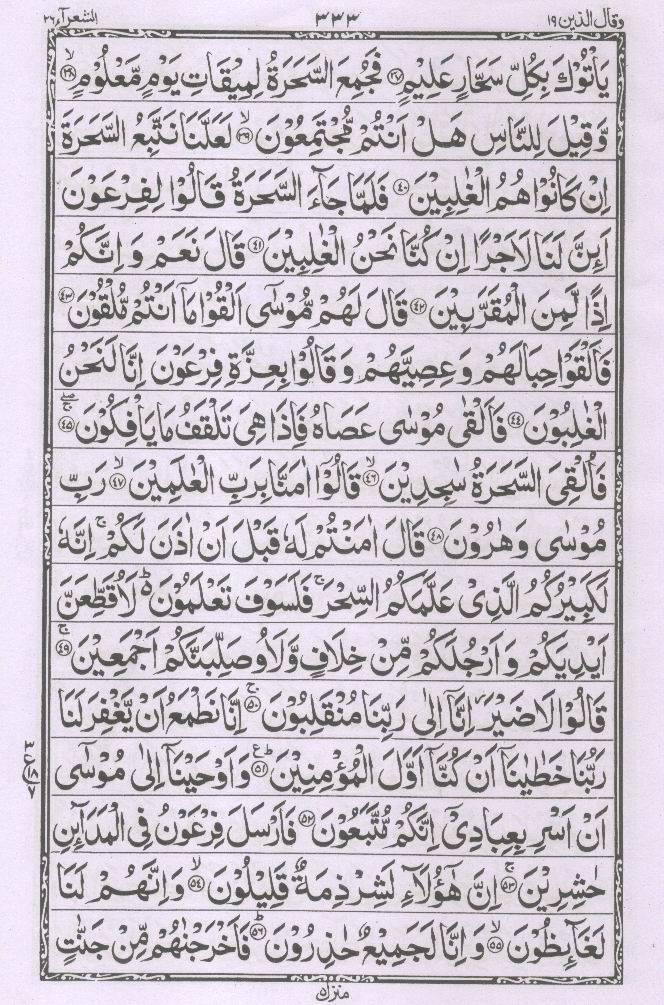 وقال الذين ١٩ ٣٣٣ الشعرآء ٢٦
يَاْتُوْكَ بِكُلِّ سَحَّارٍ عَلِيْمٍ ﴿۳۷﴾ فَجُمِعَ السَّحَرَةُ لِمِيْقَاتِ يَوْمٍ مَّعْلُوْمٍ ﴿۳۸﴾ۙ
وَّقِيْلَ لِلنَّاسِ هَلْ اَنْتُمْ مُّجْتَمِعُوْنَ ﴿۳۹﴾ۙ لَعَلَّنَا نَتَّبِعُ السَّحَرَةَ
اِنْ كَانُوْا هُمُ الْغٰلِبِيْنَ ﴿۴۰﴾ فَلَمَّا جَآءَ السَّحَرَةُ قَالُوْا لِفِرْعَوْنَ
اَئِنَّ لَنَا لَاَجْرًا اِنْ كُنَّا نَحْنُ الْغٰلِبِيْنَ ﴿۴۱﴾ قَالَ نَعَمْ وَ اِنَّكُمْ
اِذًا لَّمِنَ الْمُقَرَّبِيْنَ ﴿۴۲﴾ قَالَ لَهُمْ مُّوْسٰۤى اَلْقُوْا مَاۤ اَنْتُمْ مُّلْقُوْنَ ﴿۴۳﴾
فَاَلْقَوْا حِبَالَهُمْ وَعِصِيَّهُمْ وَقَالُوْا بِعِزَّةِ فِرْعَوْنَ اِنَّا لَنَحْنُ
الْغٰلِبُوْنَ ﴿۴۴﴾ فَاَلْقٰى مُوْسٰى عَصَاهُ فَاِذَا هِىَ تَلْقَفُ مَا يَاْفِكُوْنَ ﴿۴۵﴾ۚۖ
فَاُلْقِىَ السَّحَرَةُ سٰجِدِيْنَ ﴿۴۶﴾ۙ قَالُوْۤا اٰمَنَّا بِرَبِّ الْعٰلَمِيْنَ ﴿۴۷﴾ۙ رَبِّ
مُوْسٰى وَهٰرُوْنَ ﴿۴۸﴾ قَالَ اٰمَنْتُمْ لَهٗ قَبْلَ اَنْ اٰذَنَ لَكُمْۚ اِنَّهٗ
لَكَبِيْرُكُمُ الَّذِىْ عَلَّمَكُمُ السِّحْرَۚ فَلَسَوْفَ تَعْلَمُوْنَ ؕ لَاُقَطِّعَنَّ
اَيْدِيَكُمْ وَاَرْجُلَكُمْ مِّنْ خِلَافٍ وَّلَاُوصَلِّبَنَّكُمْ اَجْمَعِيْنَ ﴿۴۹﴾ۚ
قَالُوْا لَا ضَيْرَ اِنَّاۤ اِلٰى رَبِّنَا مُنْقَلِبُوْنَ ﴿۵۰﴾ۚ اِنَّا نَطْمَعُ اَنْ يَّغْفِرَ لَنَا
رَبُّنَا خَطٰيٰنَاۤ اَنْ كُنَّاۤ اَوَّلَ الْمُؤْمِنِيْنَ ﴿۵۱﴾ؕ وَاَوْحَيْنَاۤ اِلٰى مُوْسٰۤى
اَنْ اَسْرِ بِعِبَادِىْۤ اِنَّكُمْ مُّتَّبَعُوْنَ ﴿۵۲﴾ فَاَرْسَلَ فِرْعَوْنُ فِى الْمَدَآئِنِ
حٰشِرِيْنَ ﴿۵۳﴾ۚ اِنَّ هٰٓؤُلَآءِ لَشِرْذِمَةٌ قَلِيْلُوْنَ ﴿۵۴﴾ۙ وَاِنَّهُمْ لَنَا
لَغَآئِظُوْنَ ﴿۵۵﴾ۙ وَاِنَّا لَجَمِيْعٌ حٰذِرُوْنَ ﴿۵۶﴾ؕ فَاَخْرَجْنٰهُمْ مِّنْ جَنّٰتٍ
منزل ۵